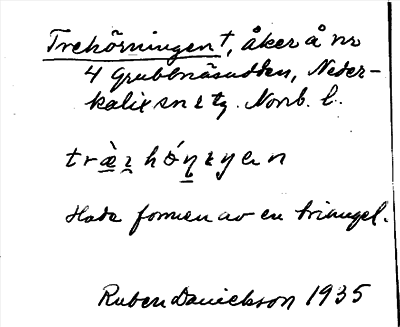 Trehörningen †, åker å nr
4 Grubbnäsudden, Neder-
kalix sn o tg. Norrb. l.
Hade formen av en triangel.
Ruben Danielsson 1935